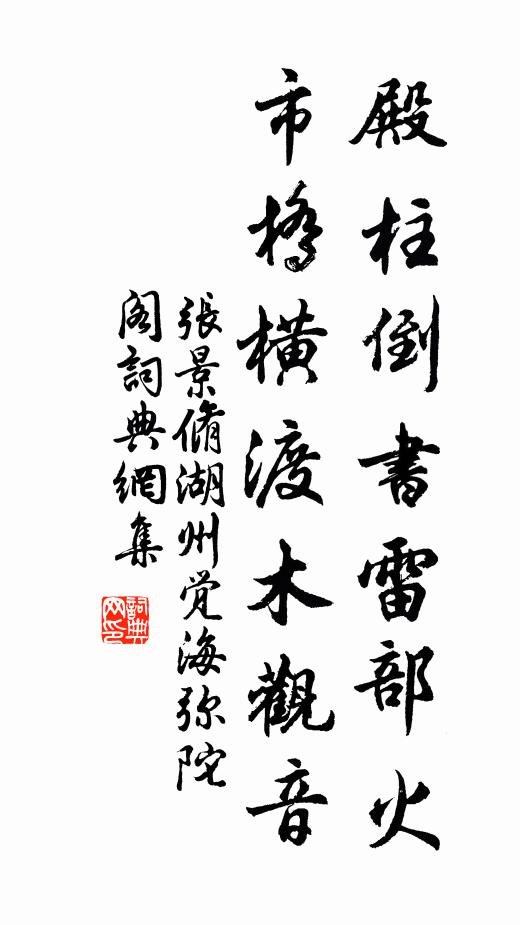 殿柱倒書雷部火
市橋橫渡木觀音
張景脩湖州觉海弥陀
阁詞典網集
詞典
网印